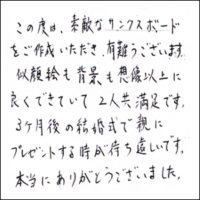 この度は、素敵なサンクスボード
をご作成いただき、有難うございます。
似顔絵も背景も想像以上に
良くできていて2人共満足です。
3ヶ月後の結婚式で親に
プレゼントする時が待ち遠しいです。
本当にありがとうございました。